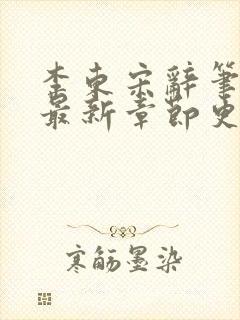 李東宋辭筆
最新章節史
寒舫墨染